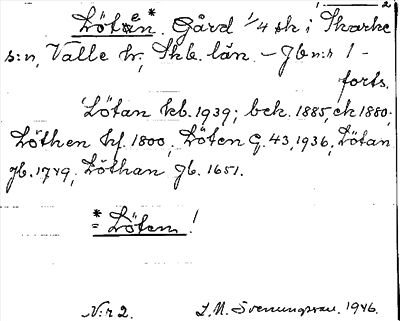 1 - 2
Löten* Gård 1/4 sk i Skarke
s:n, Valle hr, Skb. län. - Jb n:r 1 -
forts.
Lötan kb. 1939; bek. 1885, ek 1880;
Löthen hf. 1800, Löten G. 43, 1936, Lötan
Jb. 1749, Löthan Jb. 1651.
*
= Löten!
N:r 2. L. M. Svenungsson. 1946.